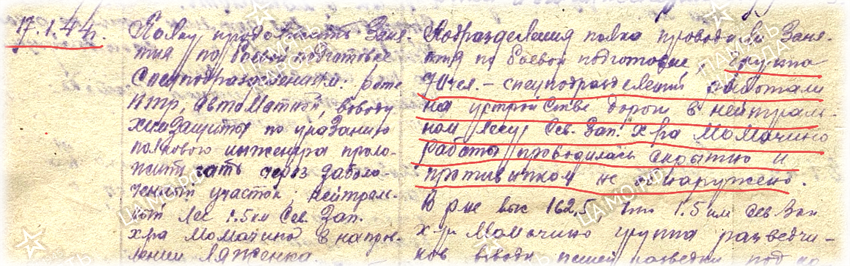 17.1.44г.
Полку продолжить Заня-
тия по боевой подготовке
Спецподразделениям: роте
ПТР, автоматной, взводу
химзащиты по указанию
полкового инженера проло-
жить гать через заболо-
ченный участок нейтраль-
ный лес 1.5 км Сев. Зап.
х-ра Момачино в направ-
лении Ляженка
Подразделения полка проводили Заня-
тия по боевой подготовке, группа
70 чел. - спецподразделений работали
на устройстве дороги в нейтраль-
ном лесу Сев. Зап. х-ра Момачино
Работы проводилась скрытно и
противником не обнаружено.
В р-не выс 162,5 что 1.5 км Сев Зап
х-р Момачино группа разведчи-
ков взвода пешей разведки под